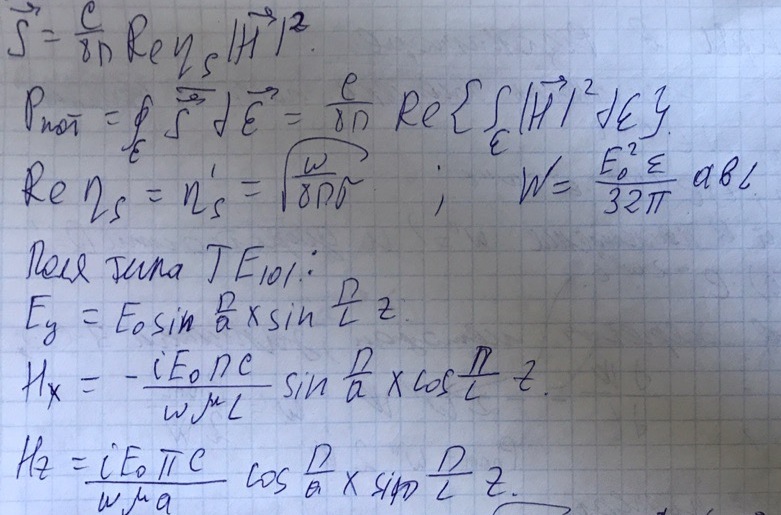 S⃗ = c/8π Re η_s |H⃗|².
P_пот = ∮_Σ S⃗ dΣ⃗ = c/8π Re{∫_Σ |H⃗|² dΣ}.
Re η_s = η'_s = √(ω/8πσ) ; W = E₀² ε/32π abL
Поля типа TE₁₀₁:
E_y = E₀ sin π/a x sin π/L z.
H_x = - iE₀πc/ωμL sin π/a x cos π/L z.
H_z = iE₀πc/ωμa cos π/a x sin π/L z.